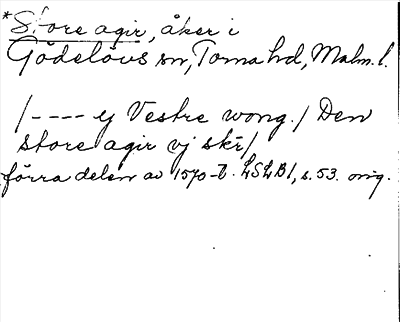 *Store agir, åker i
Gödelövs sn, Torna hd, Malm. l.
/---- ej Vestre wong./ Den
store agir vj skr/
förra delen av 1570-t. LSLB1, s. 53. orig.